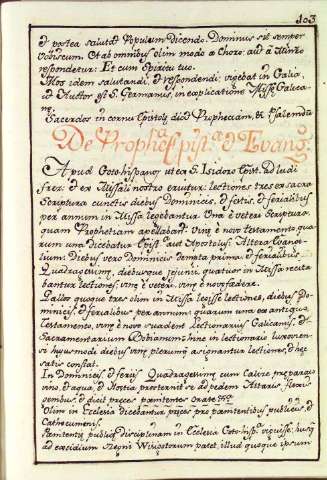 103
et postea salutat Populum Dicendo: Dominus sit semper
vobiscum. Et ab omnibus olim modo a choro, aut a Minro
respondetur: Et cum Spiritu tuo.
Mos idem salutandi, et respondendi vigebat in Galia
ut Author est S. Germanus, in explicatione Missæ Galica-
næ.
Sacerdos in cornu Epistolæ dicit Prophetiam, et Psalendum
De Prophet. Epist. et Evang.
Apud Goto-hispanos ut ex S. Isidoro Epist. ad Ludi
fred. et ex Missali nostro eruitur: lectiones tres ex sacra
Scriptura cunctis diebus Dominicis, et festis, et ferialibus
per annum in Missa legebantur. Una è veteri Scriptura,
quam Prophetiam apellabant. Binæ è novo testamento qua-
rum una dicebatur Epist. aut Apostolus: Altera Evange-
lium. Diebus vero Dominicis dempta prima, et ferialibus
Quadragesimæ, diebusque jejunii, quatuor in Missa recita
bantur lectiones, binæ è veteri, binæ è novo fœdere.
Gallos quoque tres olim in Missa legisse lectiones, diebus Do-
minicis, et ferialibus per annum: quarum una ex antiquo
Testamento, binæ è novo suadent Lectionarium Galicanum, et
Sacramentarium Bobianum: hinc in lectionario luxovien-
si hujusmodi diebus binæ plerumque assignantur lectiones, et hæc
satis constat.
In Dominicis, et feriis Quadragesimæ cum Calice præparato
vino, et aqua, et Hostia prosternit se ad pedem Altaris,
et dicit preces
Olim in Ecclesia dicebantur preces pro pœnitentibus publicis, et
Cathecumenis.
Pœnitentiæ publicæ disciplinam in Ecclesia Goto-hisp. viguisse, husq.
ad excidium Regni Wisigotorum patet, illud quoque ipsum